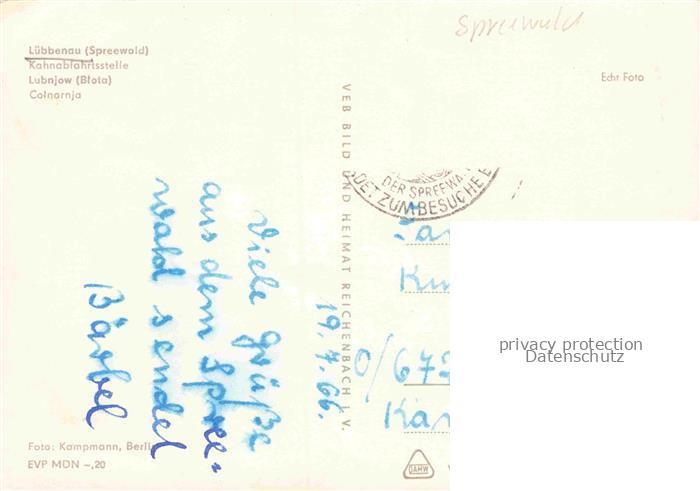 Spreewald
Lübbenau (Spreewald)
Kahnabfahrtsstelle
Lubnjow (Błota)
Colnarnja
Echt Foto
VEB BILD UND HEIMAT REICHENBACH I. V.
DER SPREEWA
DET ZUM BESUCHE E
19. 7. 66.
Viele Grüße
aus dem Spree-
wald sendet
Bärbel
0/672
privacy protection
Datenschutz
Foto: Kampmann, Berlin
EVP MDN -,20
DAMW